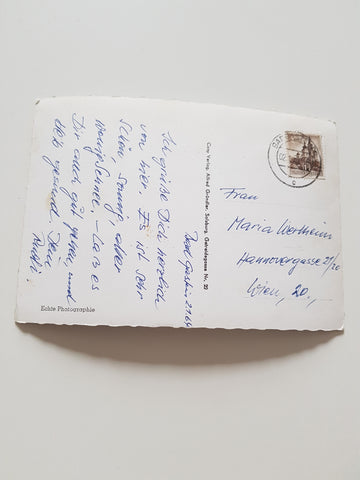 Bad Gastein 2.1.64
Ich grüße Dich herzlich
von hier. Es ist sehr
schön, sonnig, aber
wenig Schnee. Lass es
Dir auch gut gehen, und
bleib gesund. Dein
Cosy Verlag, Alfred Gründler, Salzburg, Getreidegasse Nr. 22
Frau
Maria Wertheim
Hannovergasse 21/20
Wien, 20.,
Echte Photographie